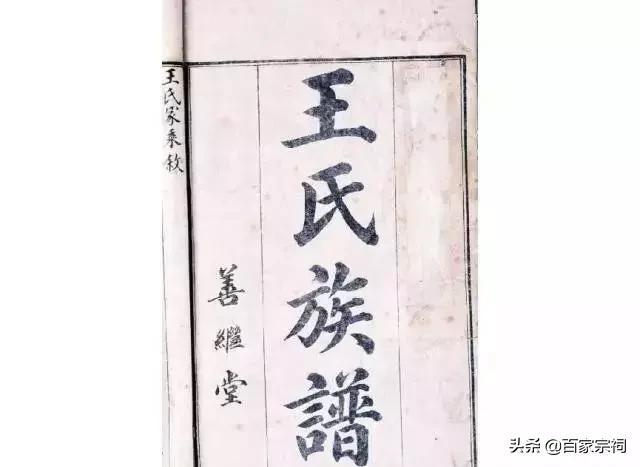 王氏族譜
善繼堂
王氏家乘敘
头条 @百家宗祠